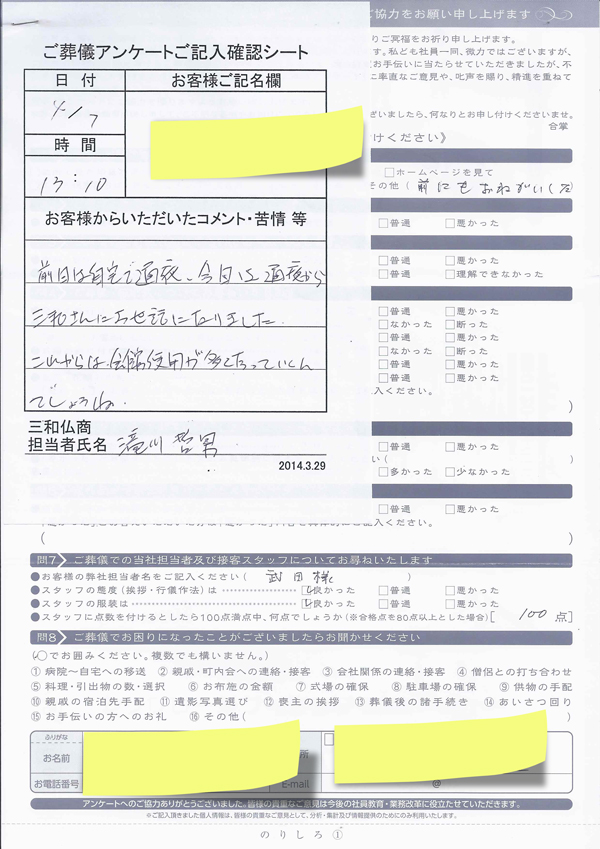 ご葬儀アンケートご記入確認シート
日 付
お客様ご記名欄
4/7
時 間
13:10
お客様からいただいたコメント・苦情 等
前回は自宅で通夜、今回は通夜から
三和さんにお世話になりました。
これからは会館使用が多くなっていくん
でしょうね。
三和仏商
担当者氏名 滝川 哲男
2014.3.29
ご協力をお願い申し上げます
りご冥福をお祈り申します。
す。私ども社員一同、微力ではございますが、
お手伝いに当たらせていただきましたが、不
に率直なご意見や、叱声を賜り、精進を重ねて
ざいましたら、何なりとお申し付けくださいませ。
合掌
けください》
□ホームページを見て
その他( 前にもおねがいした
□普通 □悪かった
□普通 □悪かった
□普通 □理解できなかった
□普通 □悪かった
□なかった □断った
□普通 □悪かった
□なかった □断った
□普通 □悪かった
□普通 □悪かった
入ください。
)
□普通 □悪かった
い( )
□多かった □少なかった
□普通 □悪かった
入ください。
( )
問7 ご葬儀での当社担当者及び接客スタッフについてお尋ねいたします
●お客様の弊社担当者名をご記入ください( 武田様 )
●スタッフの態度(挨拶・行儀作法)は ☑良かった □普通 □悪かった
●スタッフの服装は ☑良かった □普通 □悪かった
●スタッフに点数を付けるとしたら100点満点中、何点でしょうか(※合格点を80点以上とした場合)[ 100 点]
問8 ご葬儀でお困りになったことがございましたらお聞かせください
(○でお囲みください。複数でも構いません。)
① 病院～自宅への移送 ② 親戚・町内会への連絡・接客 ③ 会社関係の連絡・接客 ④ 僧侶との打ち合わせ
⑤ 料理・引出物の数・選択 ⑥ お布施の金額 ⑦ 式場の確保 ⑧ 駐車場の確保 ⑨ 供物の手配
⑩ 親戚の宿泊先手配 ⑪ 遺影写真選び ⑫ 喪主の挨拶 ⑬ 葬儀後の諸手続き ⑭ あいさつ回り
⑮ お手伝いの方へのお礼 ⑯ その他( )
ふりがな
お名前
所
お電話番号
E-mail
@
アンケートへのご協力ありがとうございました。皆様の貴重なご意見は今後の社員教育・業務改革に役立たせていただきます。
※ご記入頂きました個人情報は、皆様の貴重なご意見として、分析・集計及び情報提供のためにのみ利用いたします。
のりしろ①